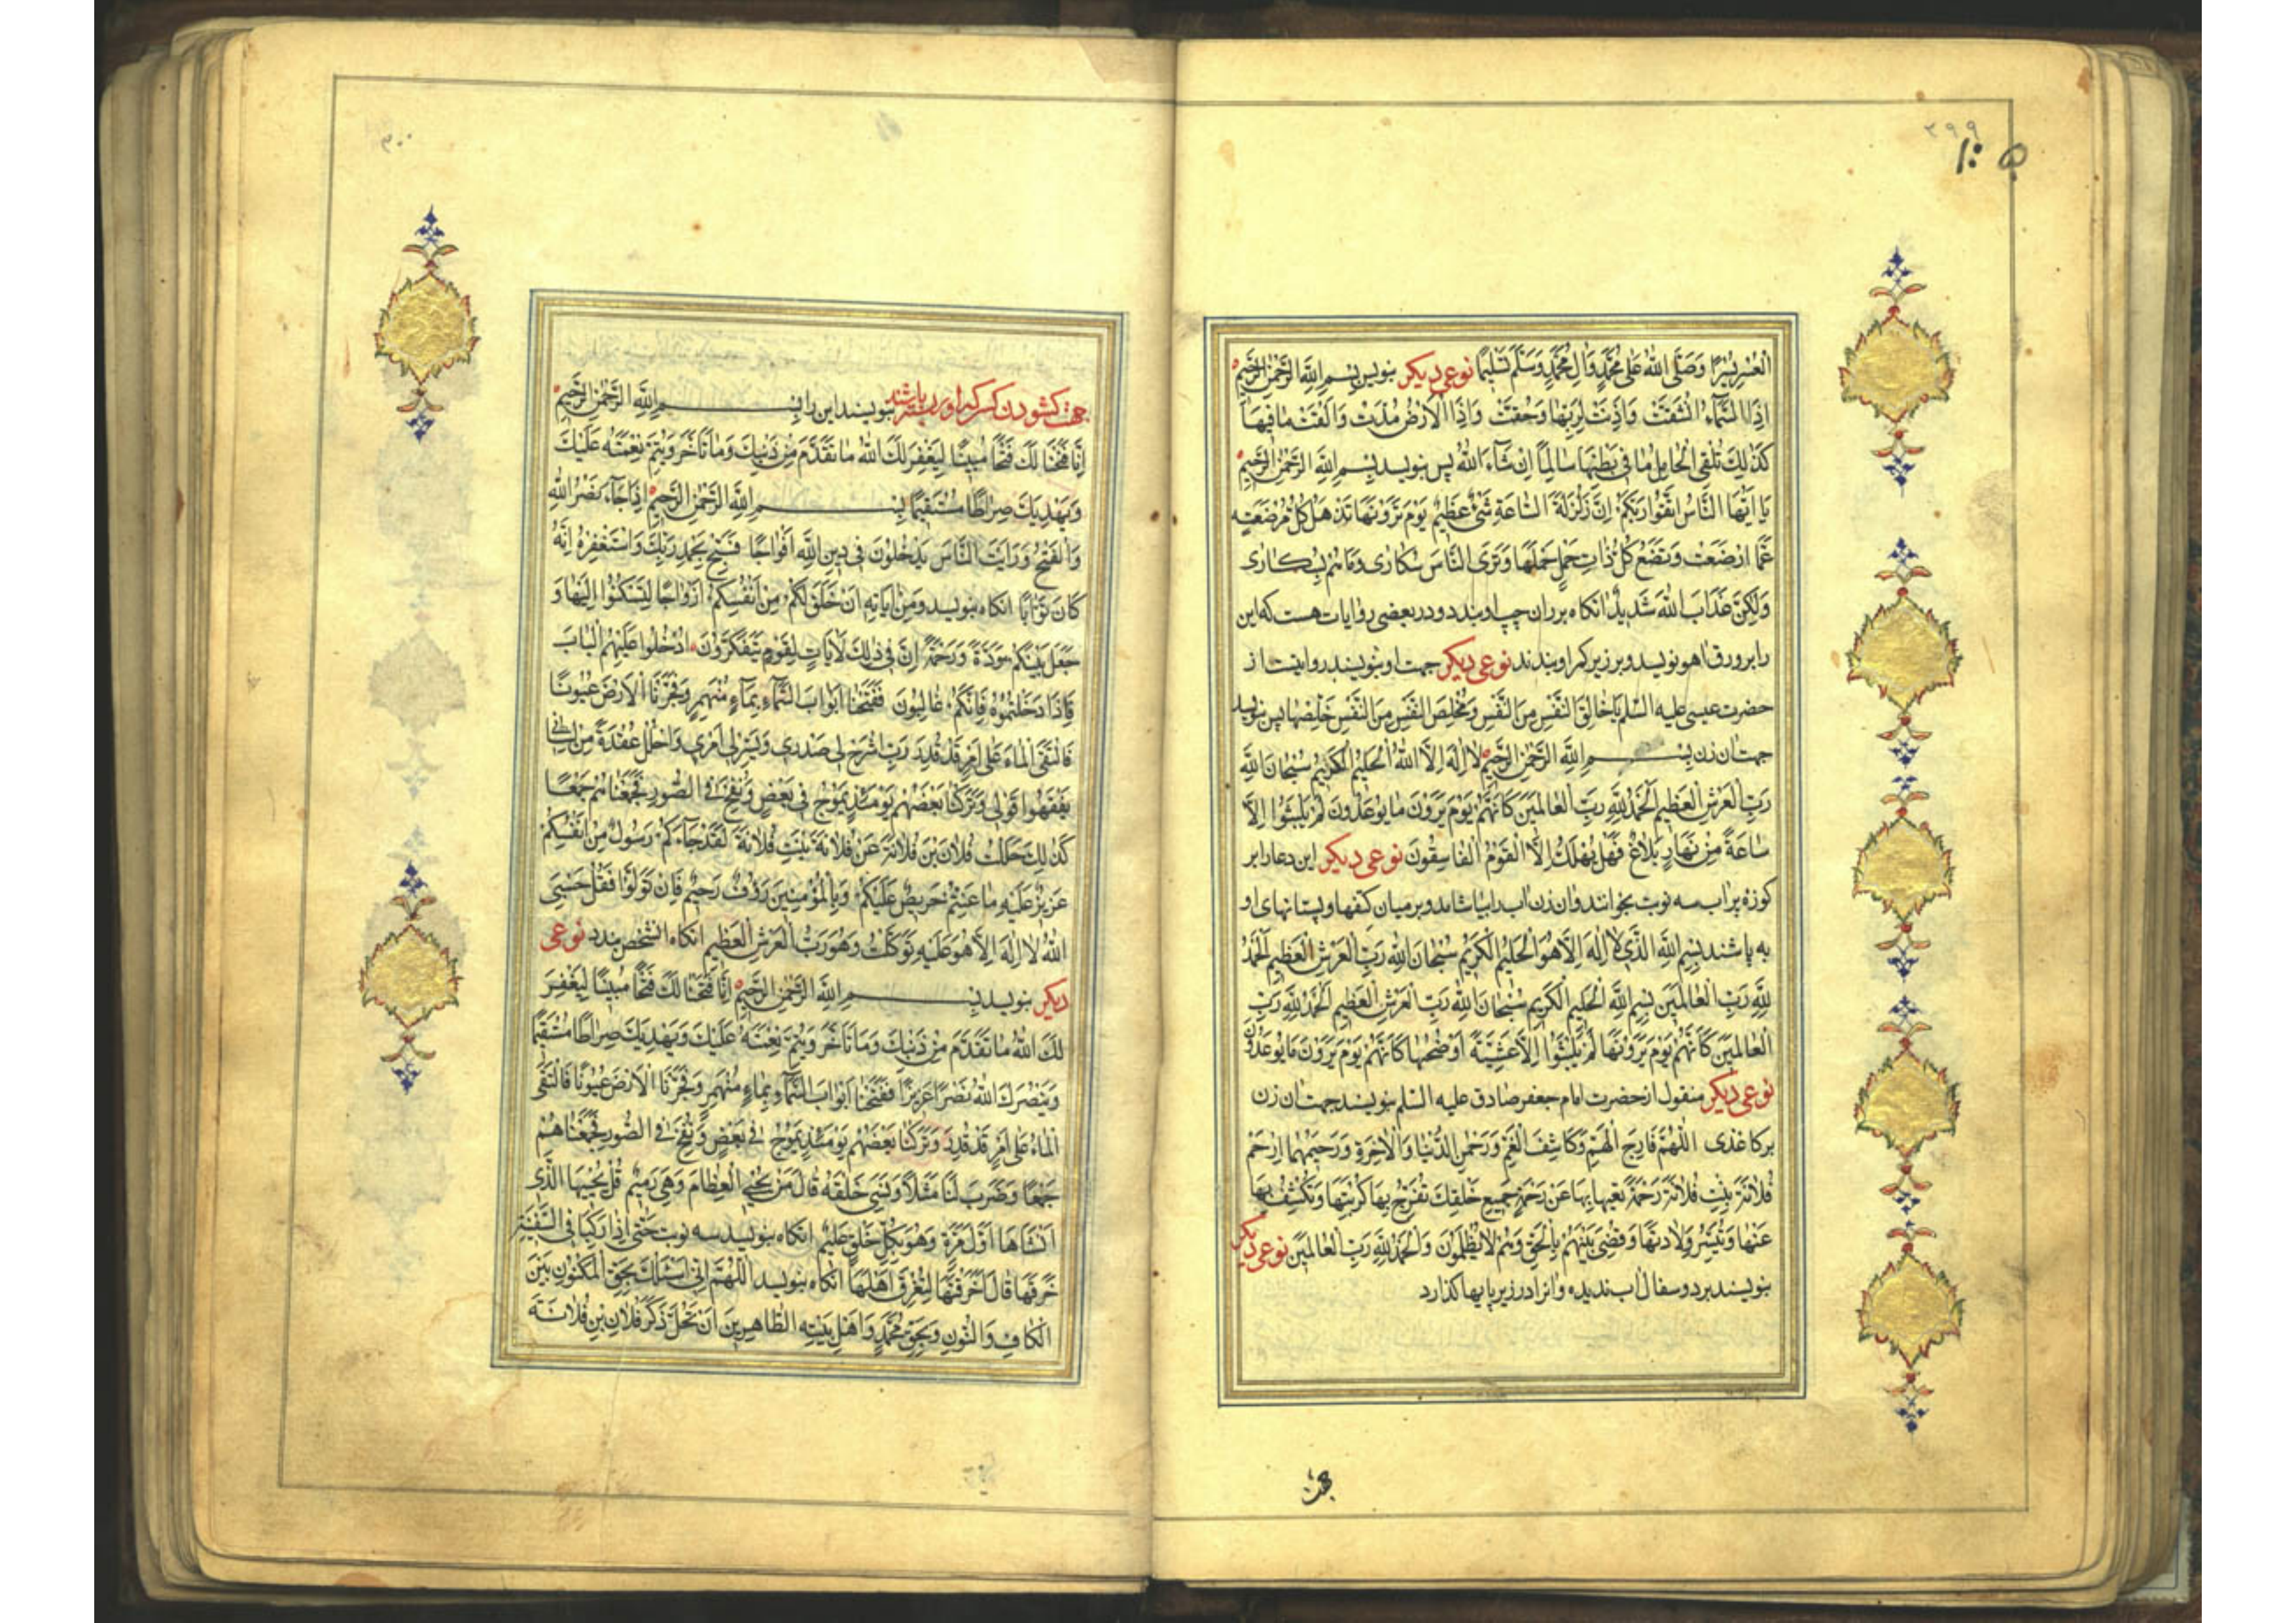 ۳۹۹
۱۰۵
العسر یسرا وصلی الله علی محمد وال محمد وسلم تسلیما نوعی دیکر بنویس بسم الله الرحمن الرحیم
اذا السماء انشقت واذنت لربها وحقت واذا الارض مدت والقت ما فیها
کذلک تلقی الحامل ما فی بطنها سالما ان شاء الله پس بنویسد بسم الله الرحمن الرحیم
یا ایها الناس اتقوا ربکم ان زلزلة الساعة شئ عظیم یوم ترونها تذهل کل مرضعة
عما ارضعت وتضع کل ذات حمل حملها وتری الناس سکاری وما هم بسکاری
ولکن عذاب الله شدید انکاه بر ران چپ او بندد و در بعضی روایات هست که این
را بر ورق اهو نویسد و بر زیر کمر او بندند نوعی دیکر جهت او بنویسند روایتست از
حضرت عیسی علیه السلم یا خالق النفس من النفس ومخلص النفس من النفس خلصها پس بنویسد
جهت ان زن بسم الله الرحمن الرحیم لا اله الا الله الحلیم الکریم سبحان الله
رب العرش العظیم الحمد لله رب العالمین کانهم یوم یرون ما یوعدون لم یلبثوا الا
ساعة من نهار بلاغ فهل یهلک الا القوم الفاسقون نوعی دیکر این دعا را بر
کوزه پر اب سه نوبت بخوانند وان زن اب را بیاشامد و بر میان کتفها و پستانهای او
به پاشند بسم الله الذی لا اله الا هو الحلیم الکریم سبحان الله رب العرش العظیم الحمد
لله رب العالمین بسم الله الحلیم الکریم سبحان الله رب العرش العظیم الحمد لله رب
العالمین کانهم یوم یرونها لم یلبثوا الا عشیة او ضحیها کانهم یوم یرون ما یوعدون
نوعی دیکر منقول از حضرت امام جعفر صادق علیه السلم بنویسند جهت ان زن
بر کاغذی اللهم فارج الهم وکاشف الغم ورحمن الدنیا والاخرة ورحیمهما ارحم
فلانة بنت فلانة رحمة تغنیها بها عن رحمة جمیع خلقک تفرج بها کربتها وتکشف بها
عنها وتیسر ولادتها وقضی بینهم بالحق وهم لا یظلمون والحمد لله رب العالمین نوعی دیکر
بنویسند بر دو سفال اب ندیده وانرا در زیر پایها کذارد
جهت
۳۰۰
جهت کشودن کسی که او را بسته باشند بنویسند این را بسم الله الرحمن الرحیم
انا فتحنا لک فتحا مبینا لیغفر لک الله ما تقدم من ذنبک وما تاخر ویتم نعمته علیک
ویهدیک صراطا مستقیما بسم الله الرحمن الرحیم اذا جاء نصر الله
والفتح ورایت الناس یدخلون فی دین الله افواجا فسبح بحمد ربک واستغفره انه
کان توابا انکاه بنویسد ومن ایاته ان خلق لکم من انفسکم ازواجا لتسکنوا الیها و
جعل بینکم مودة ورحمة ان فی ذلک لایات لقوم یتفکرون ادخلوا علیهم الباب
فاذا دخلتموه فانکم غالبون ففتحنا ابواب السماء بماء منهمر وفجرنا الارض عیونا
فالتقی الماء علی امر قد قدر رب اشرح لی صدری ویسر لی امری واحلل عقدة من لسانی
یفقهوا قولی وترکنا بعضهم یومئذ یموج فی بعض ونفخ فی الصور فجمعناهم جمعا
کذلک حللت فلان بن فلانة عن فلانة بنت فلانة لقد جاءکم رسول من انفسکم
عزیز علیه ما عنتم حریص علیکم وبالمؤمنین رؤف رحیم فان تولوا فقل حسبی
الله لا اله الا هو علیه توکلت وهو رب العرش العظیم انکاه انشخص بندد نوعی
دیکر بنویسد بسم الله الرحمن الرحیم انا فتحنا لک فتحا مبینا لیغفر
لک الله ما تقدم من ذنبک وما تاخر ویتم نعمته علیک ویهدیک صراطا مستقیما
وینصرک الله نصرا عزیزا ففتحنا ابواب السماء بماء منهمر وفجرنا الارض عیونا فالتقی
الماء علی امر قد قدر وترکنا بعضهم یومئذ یموج فی بعض ونفخ فی الصور فجمعناهم
جمعا وضرب لنا مثلا ونسی خلقه قال من یحیی العظام وهی رمیم قل یحییها الذی
انشاها اول مرة وهو بکل خلق علیم انکاه بنویسد سه نوبت حتی اذا رکبا فی السفینة
خرقها قال اخرقتها لتغرق اهلها انکاه بنویسد اللهم انی اسئلک بحق المکنون بین
الکاف والنون وبحق محمد واهل بیته الطاهرین ان تحل ذکر فلان بن فلانة